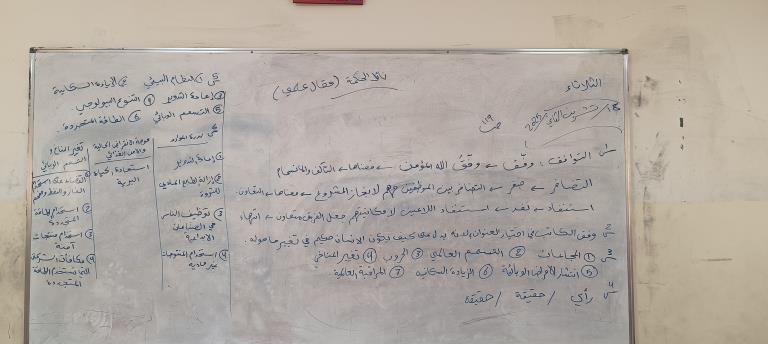 الثلاثاء
بالحكمة (مقال علمي)
ص ١١٩
س١ التوافق: وفّق ← وفّقَ الله المؤمن ← معناها التآلف والانسجام
التضافر ← ضفر ← التضافر بين الموظفين مهم لإنجاز المشروع ← معناها التعاون.
استنفاد ← نفد ← استنفاد اللاعبين لإمكانيتهم جعل الفريق يتعاون ← انتهاء
س٢ وفق الكاتب في اختيار العنوان لأنه يدل على كيف يكون الإنسان حكيم في تغير ما حوله.
س٣ ① المجاعات ② التسمم العالمي ③ الحروب ④ تغير المناخي
⑤ انتشار الأمراض الوبائية ⑥ الزيادة السكانية ⑦ المراقبة العالمية
س٤ رأي / حقيقة / حقيقة
س٥ ① النظام البيئي ② الزيادة السكانية
③ إعادة التدوير ④ التنوع البيولوجي.
⑤ التسمم الوبائي ⑥ الطاقة المتجددة.
س٦ ندرة الموارد
① إعادة التدوير
② إزالة الطابع المادي للثروة
③ توظيف الناس في الصناعات الإبداعية
④ استخدام المنتوجات غير مادية
موجة الانقراض الحالية والأمن الغذائي
استعادة الحياة البرية
تغير المناخ والتسمم الوبائي
① القضاء على استخدام الغاز والنفط والفحم
② استخدام الطاقة المتجددة
③ استخدام منتجات آمنة
④ مكافآت الشركات التي تستخدم الطاقة المتجددة